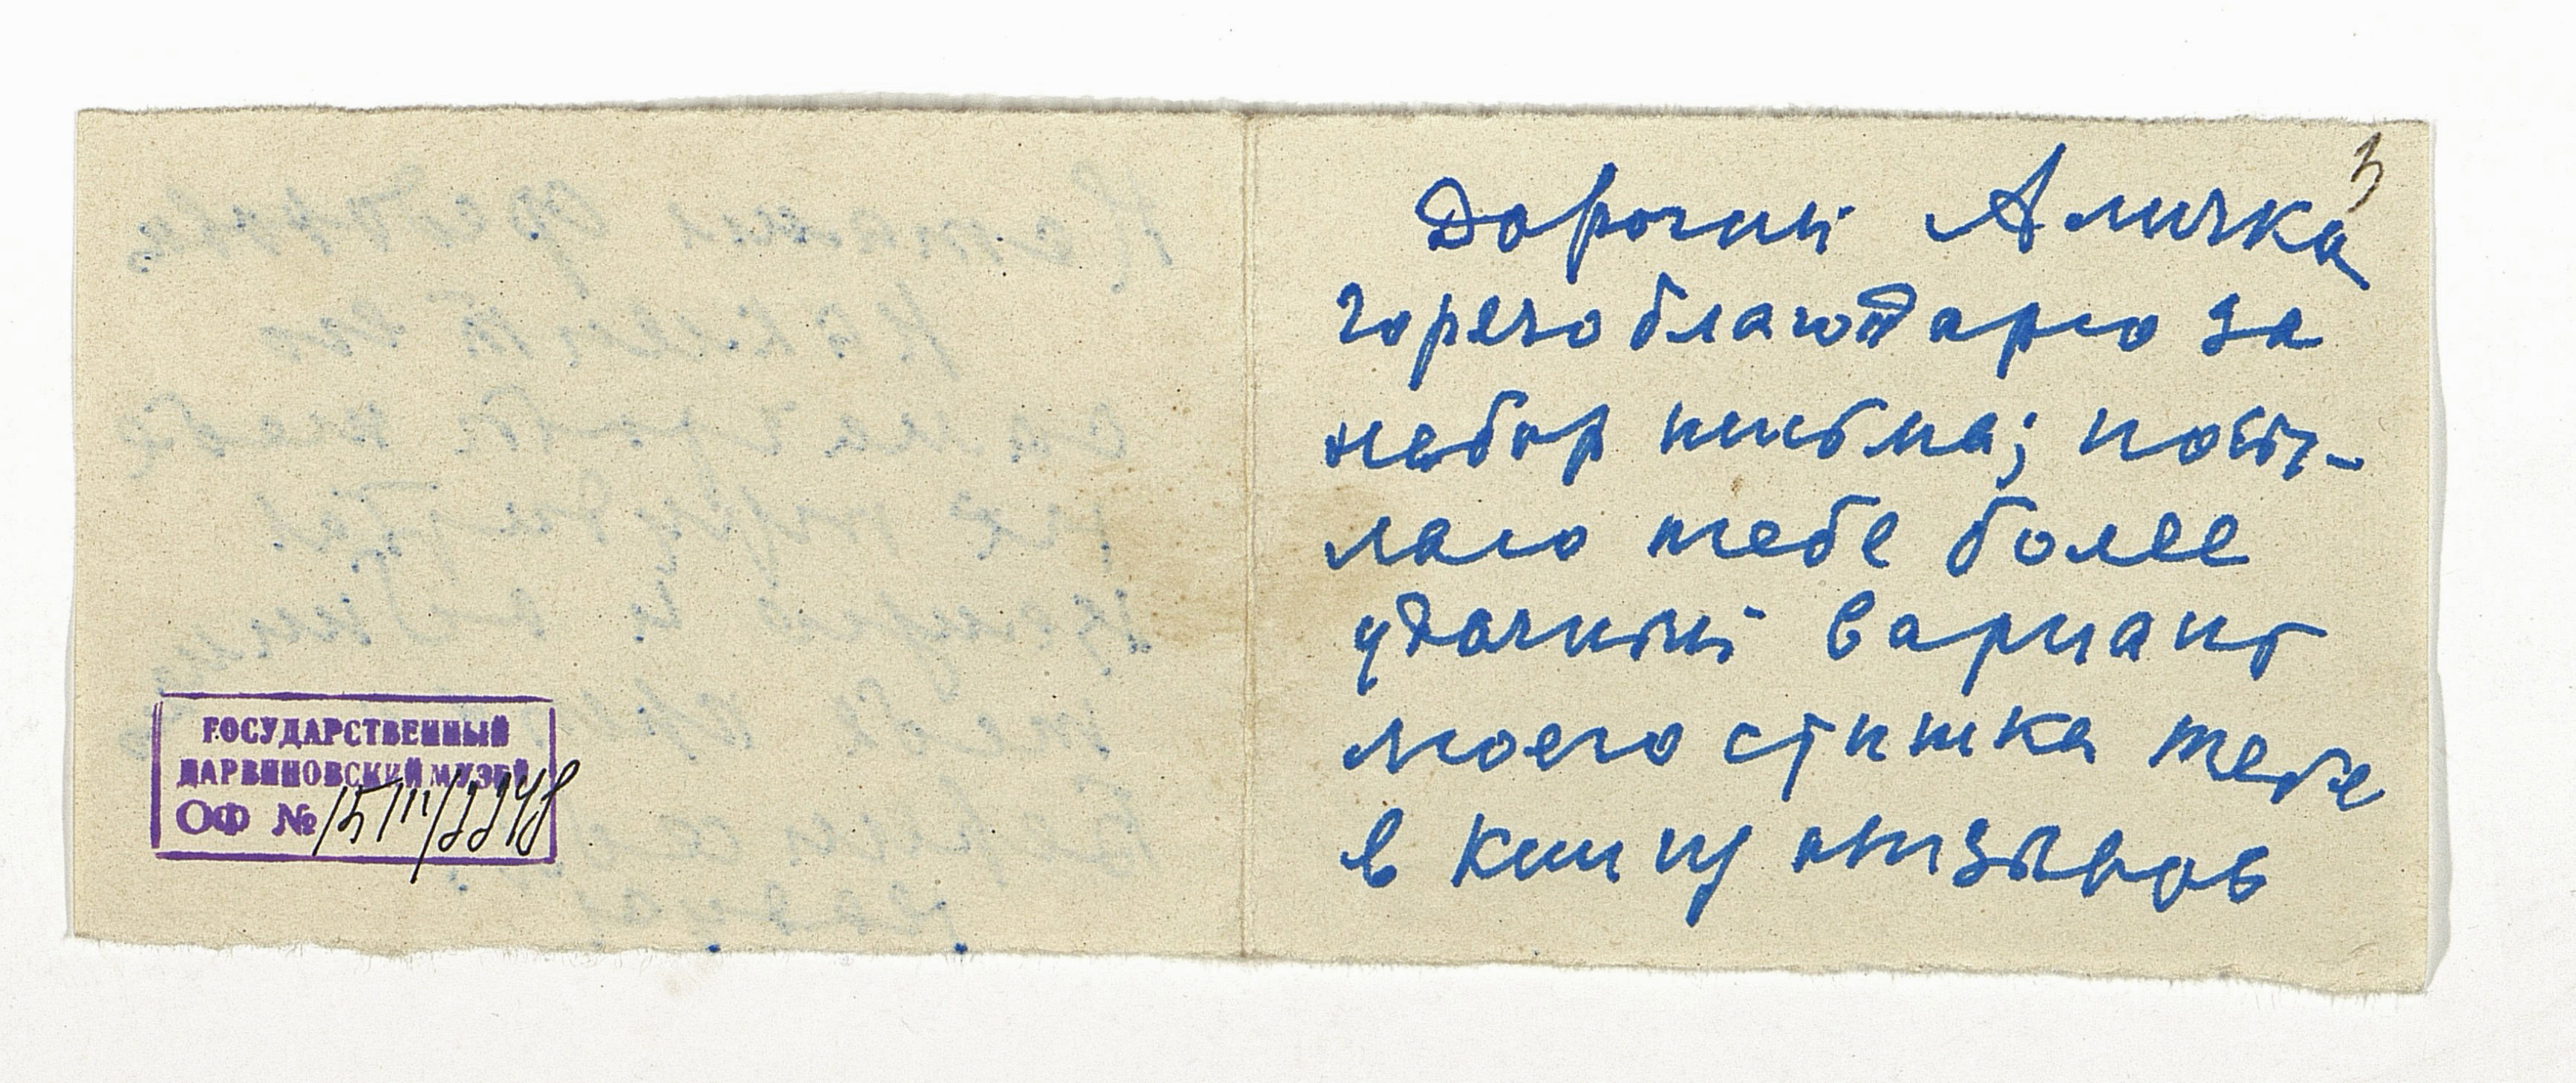 ГОСУДАРСТВЕННЫЙ
ДАРВИНОВСКИЙ МУЗЕЙ
ОФ №
3
Дорогий Аличка
горячо благодарю за
набор письма; посы-
лаю тебе более
удачный вариант
моего стишка тебе
в книгу отзывов